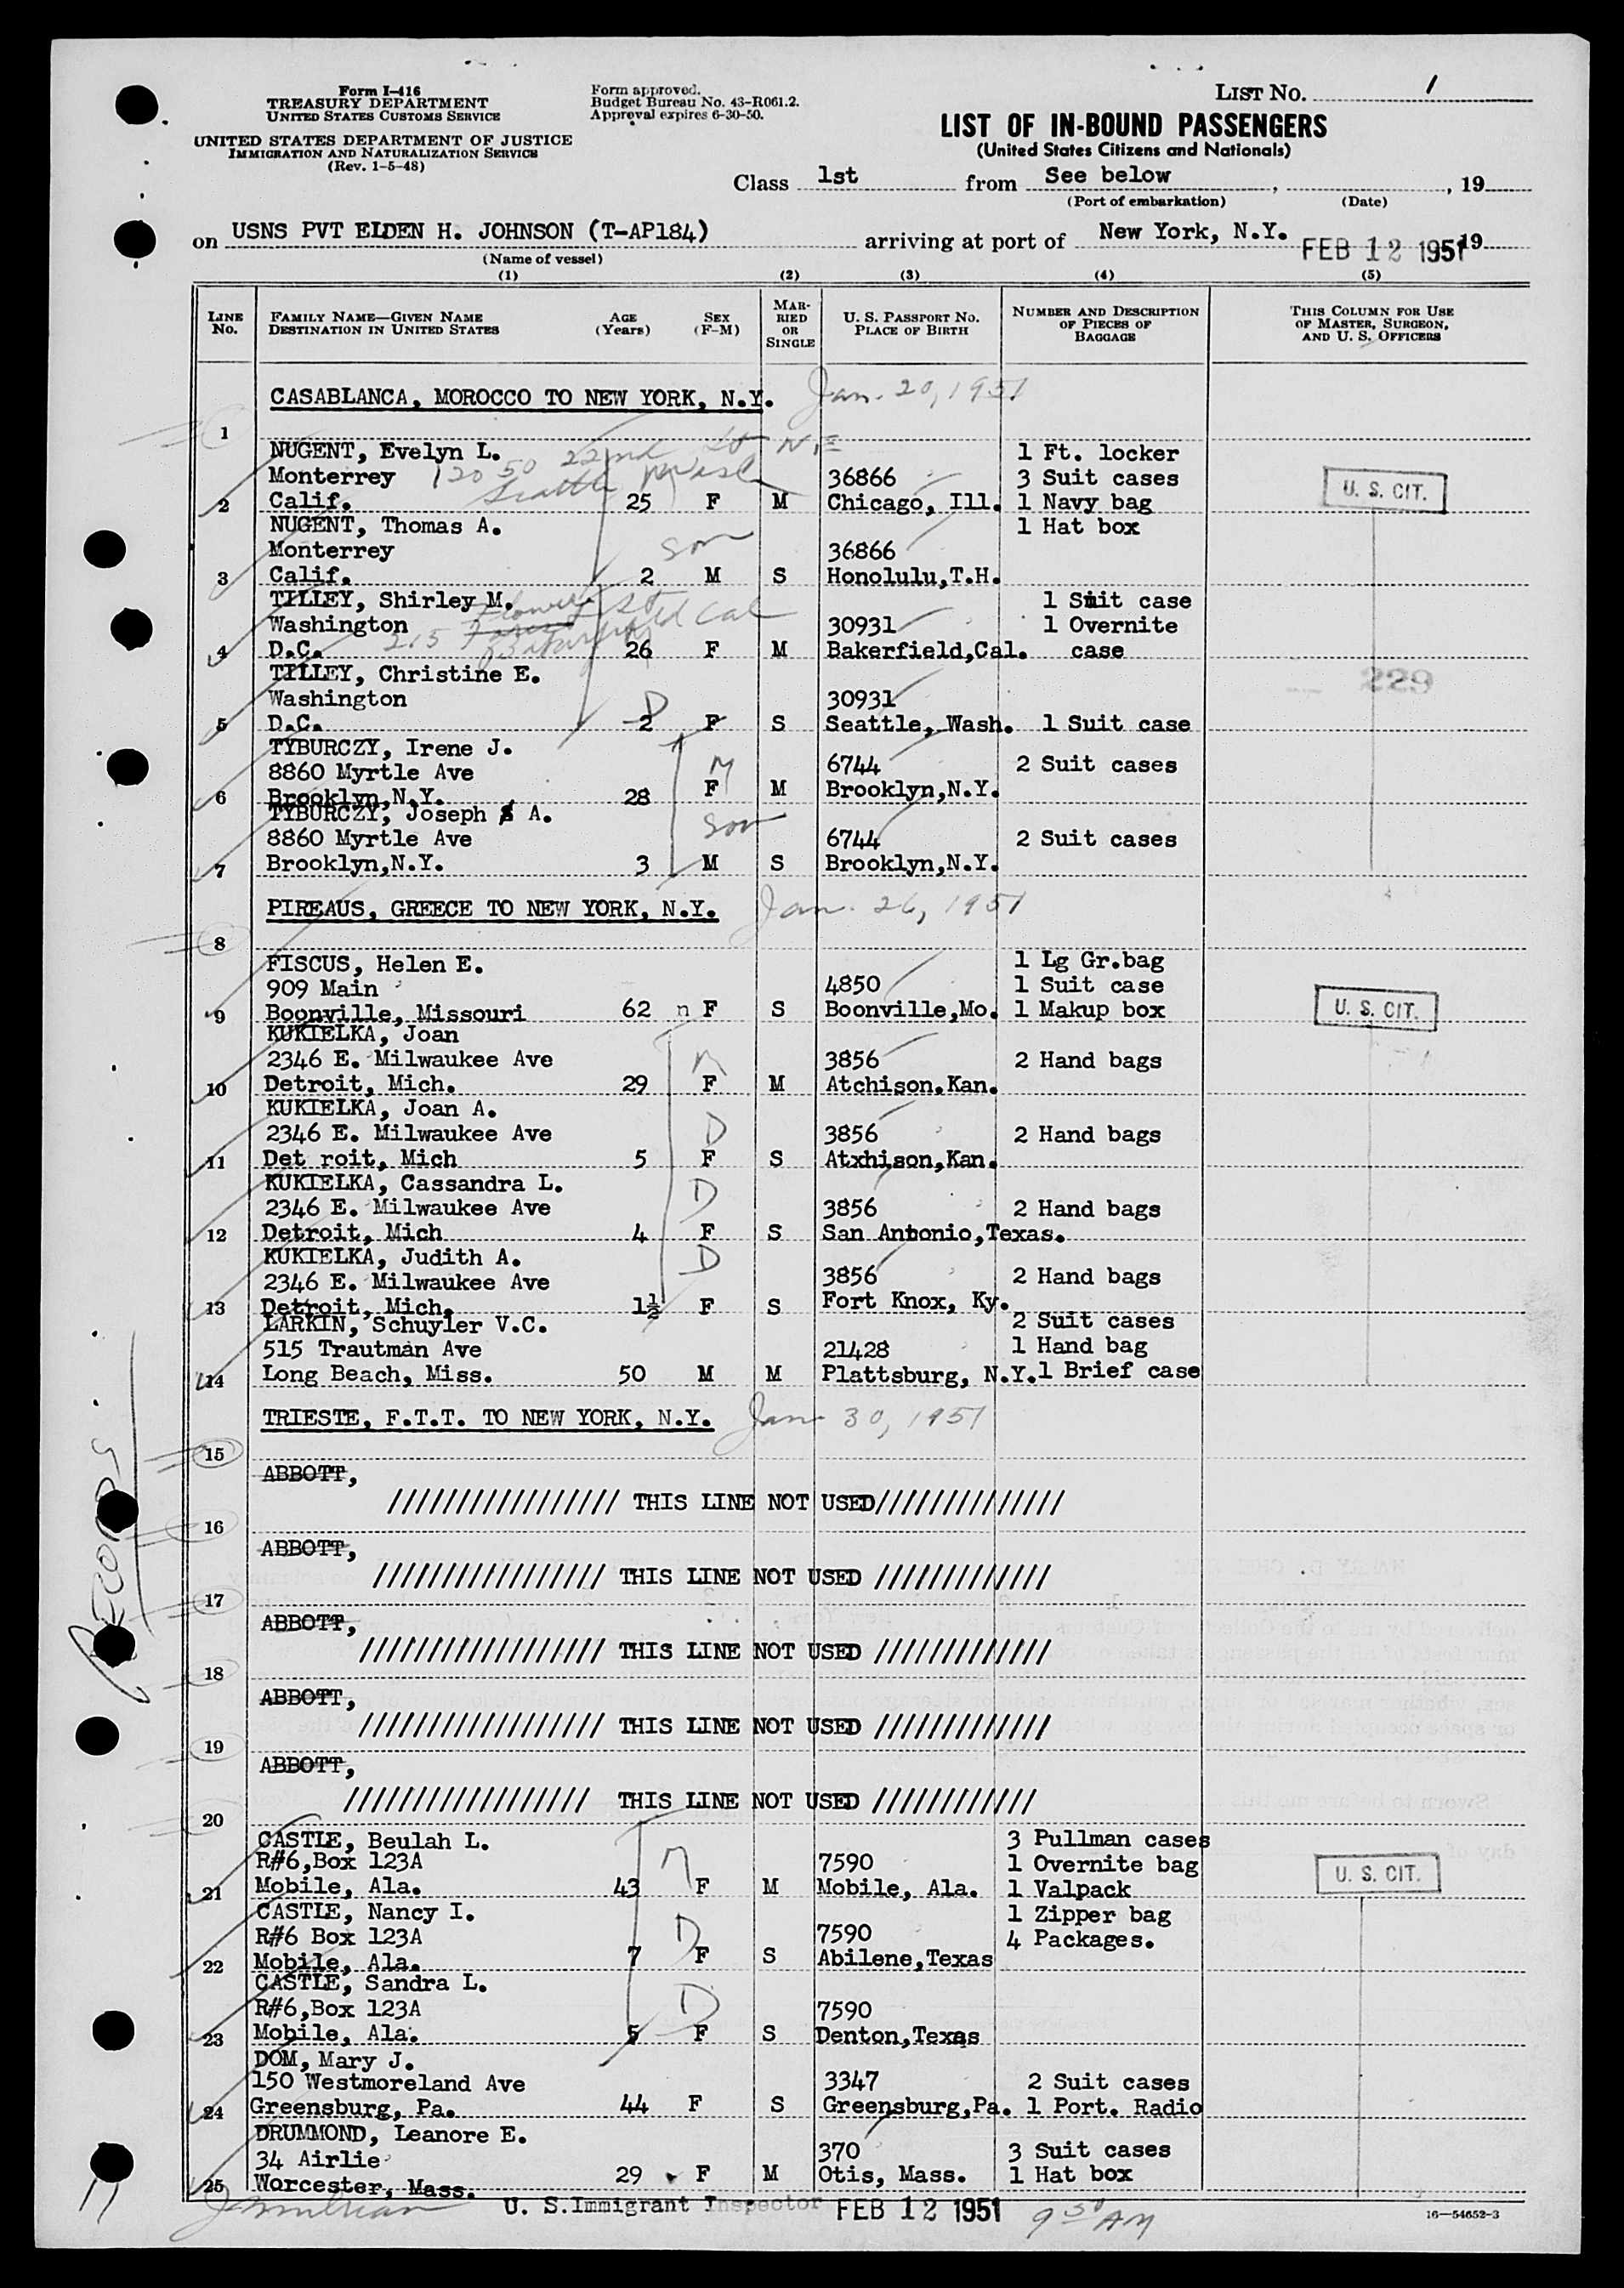 Form I-416
TREASURY DEPARTMENT
UNITED STATES CUSTOMS SERVICE
UNITED STATES DEPARTMENT OF JUSTICE
IMMIGRATION AND NATURALIZATION SERVICE
(Rev. 1-5-48)
Form approved.
Budget Bureau No. 43-R061.2.
Approval expires 6-30-50.
LIST NO. 1
LIST OF IN-BOUND PASSENGERS
(United States Citizens and Nationals)
Class 1st from See below, , 19
(Port of embarkation) (Date)
on USNS PVT ELDEN H. JOHNSON (T-AP184) arriving at port of New York, N.Y. FEB 12 1951 19
(Name of vessel)
(1) (2) (3) (4) (5)
LINE NO. FAMILY NAME—GIVEN NAME DESTINATION IN UNITED STATES AGE (Years) SEX (F-M) MARRIED OR SINGLE U. S. PASSPORT NO. PLACE OF BIRTH NUMBER AND DESCRIPTION OF PIECES OF BAGGAGE THIS COLUMN FOR USE OF MASTER, SURGEON, AND U. S. OFFICERS
CASABLANCA, MOROCCO TO NEW YORK, N.Y. Jan. 20, 1951
1
NUGENT, Evelyn L. 1 Ft. locker
Monterrey 12050 22nd St N.E 36866 3 Suit cases
2 Calif. Seattle Wash 25 F M Chicago, Ill. 1 Navy bag U. S. CIT.
NUGENT, Thomas A. 1 Hat box
Monterrey son 36866
3 Calif. 2 M S Honolulu,T.H.
TILLEY, Shirley M. Flower St 1 Suit case
Washington 215 Bakersfield Cal 30931 1 Overnite
4 D.C. 26 F M Bakerfield,Cal. case
TILLEY, Christine E. 229
Washington D 30931
5 D.C. 2 F S Seattle, Wash. 1 Suit case
TYBURCZY, Irene J.
8860 Myrtle Ave M 6744 2 Suit cases
6 Brooklyn,N.Y. 28 F M Brooklyn,N.Y.
TYBURCZY, Joseph A. son
8860 Myrtle Ave 6744 2 Suit cases
7 Brooklyn,N.Y. 3 M S Brooklyn,N.Y.
PIREAUS, GREECE TO NEW YORK, N.Y. Jan. 26, 1951
8
FISCUS, Helen E. 1 Lg Gr.bag
909 Main 4850 1 Suit case
9 Boonville, Missouri 62 n F S Boonville,Mo. 1 Makup box U. S. CIT.
KUKIELKA, Joan
2346 E. Milwaukee Ave M 3856 2 Hand bags
10 Detroit, Mich. 29 F M Atchison.Kan.
KUKIELKA, Joan A.
2346 E. Milwaukee Ave D 3856 2 Hand bags
11 Det roit, Mich 5 F S Atxhison,Kan.
KUKIELKA, Cassandra L.
2346 E. Milwaukee Ave D 3856 2 Hand bags
12 Detroit, Mich 4 F S San Antonio,Texas.
KUKIELKA, Judith A.
2346 E. Milwaukee Ave D 3856 2 Hand bags
13 Detroit, Mich. 1½ F S Fort Knox, Ky.
LARKIN, Schuyler V.C. 2 Suit cases
515 Trautman Ave 21428 1 Hand bag
14 Long Beach, Miss. 50 M M Plattsburg, N.Y. 1 Brief case
TRIESTE, F.T.T. TO NEW YORK, N.Y. Jan 30, 1951
15
ABBOTT,
///////////////// THIS LINE NOT USED//////////////
16
ABBOTT,
///////////////// THIS LINE NOT USED /////////////
17
ABBOTT,
////////////////// THIS LINE NOT USED /////////////
18
ABBOTT,
////////////////// THIS LINE NOT USED /////////////
19
ABBOTT,
////////////////// THIS LINE NOT USED ////////////
20
CASTLE, Beulah L. 3 Pullman cases
R#6,Box 123A M 7590 1 Overnite bag
21 Mobile, Ala. 43 F M Mobile, Ala. 1 Valpack U. S. CIT.
CASTLE, Nancy I. 1 Zipper bag
R#6 Box 123A D 7590 4 Packages.
22 Mobile, Ala. 7 F S Abilene,Texas
CASTLE, Sandra L.
R#6,Box 123A D 7590
23 Mobile, Ala. 5 F S Denton,Texas
DOM, Mary J.
150 Westmoreland Ave 3347 2 Suit cases
24 Greensburg, Pa. 44 F S Greensburg,Pa. 1 Port. Radio
DRUMMOND, Leanore E.
34 Airlie 370 3 Suit cases
25 Worcester, Mass. 29 F M Otis, Mass. 1 Hat box
U. S. Immigrant Inspector FEB 12 1951 9 30 AM
16—54652-3
RECORDS